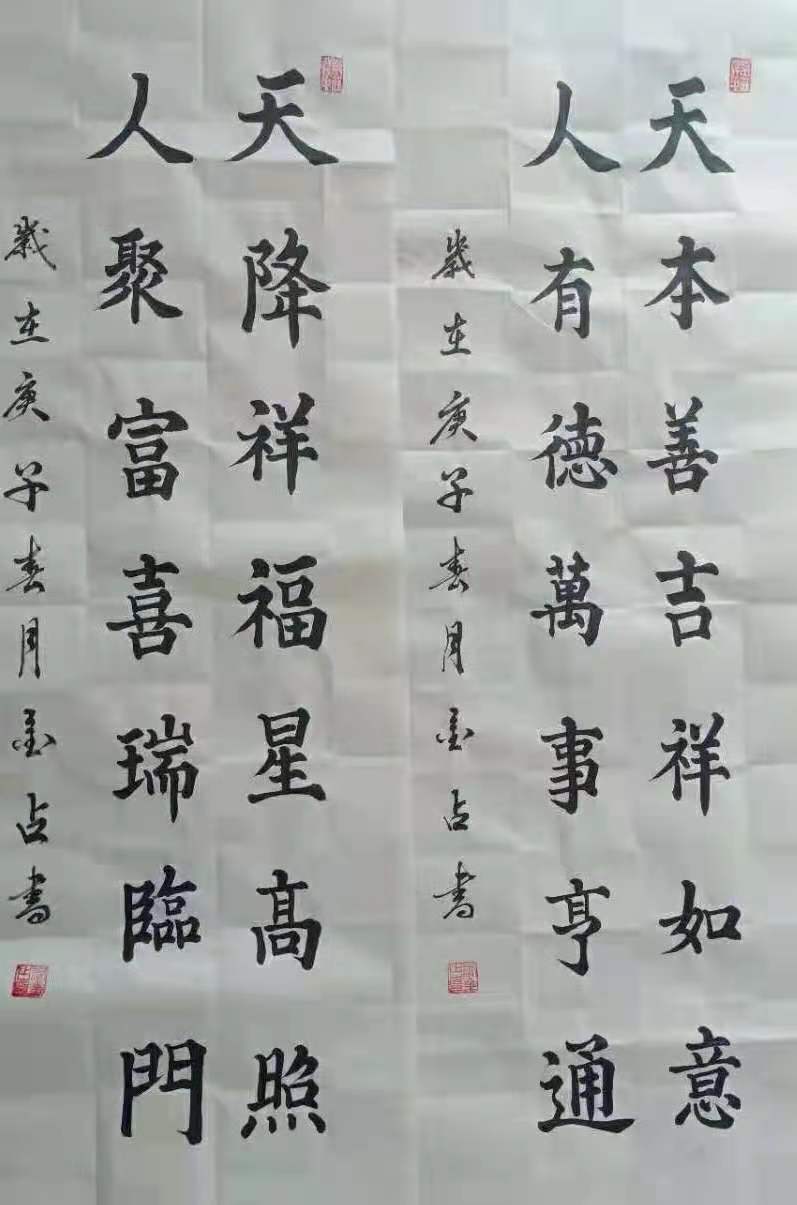 天本善吉祥如意
人有德萬事亨通
歲在庚子春月金占書
天降祥福星高照
人聚富喜瑞臨門
歲在庚子春月金占書